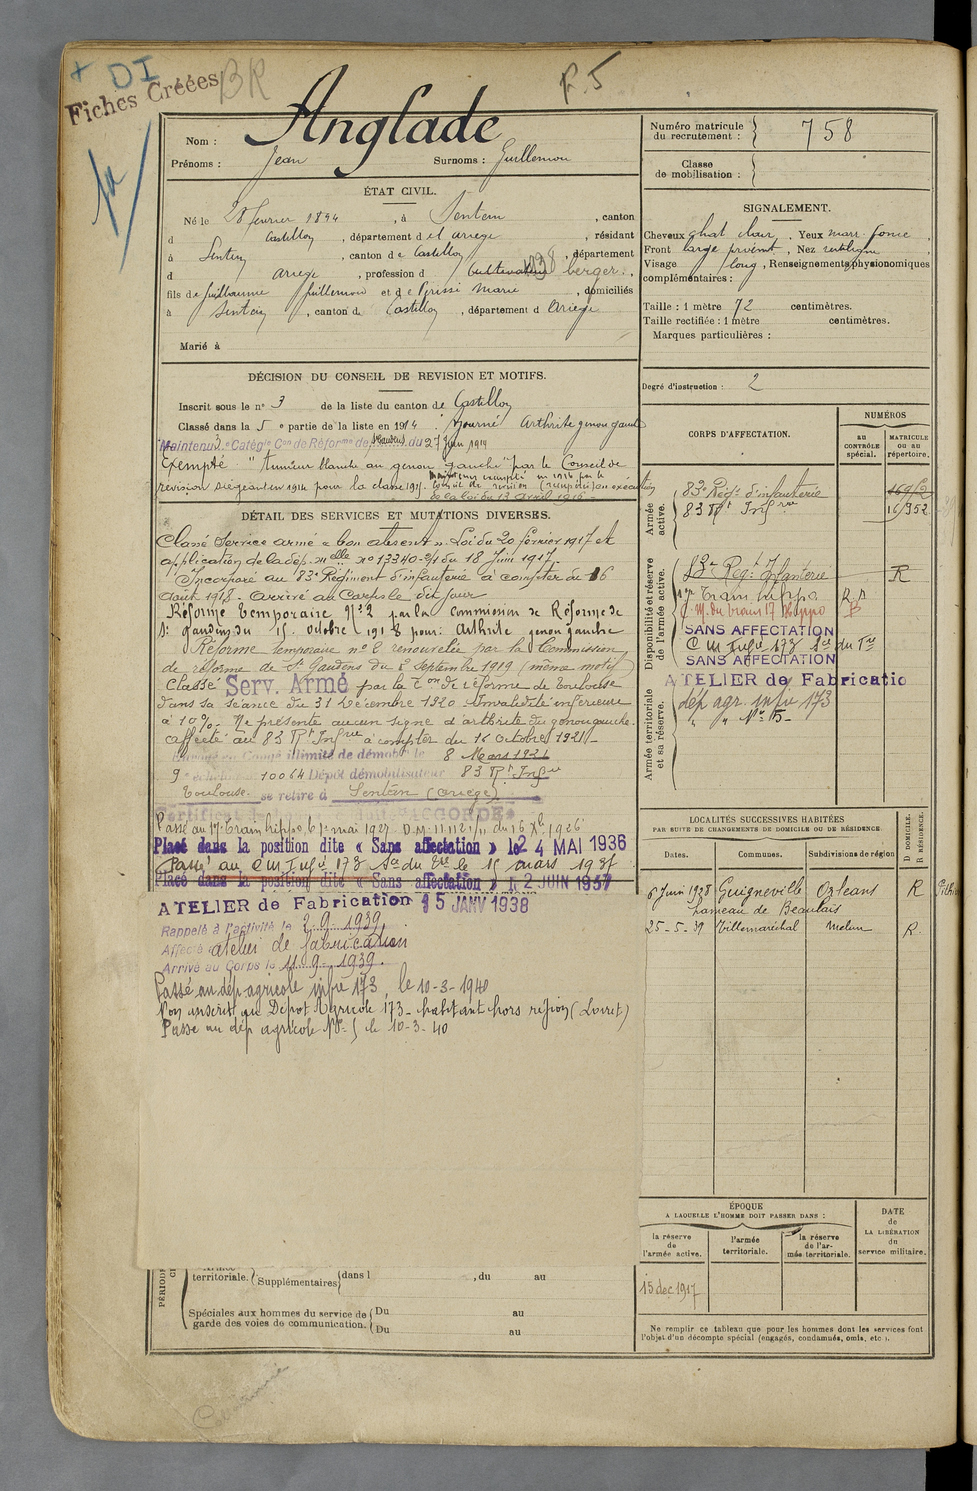 + DI
Fiches Créées
BR
Nom : Anglade
Prénoms : Jean Surnoms : Guillemou
Numéro matricule du recrutement : 758
Classe de mobilisation :
ÉTAT CIVIL.
Né le 28 février 1894, à Sentein, canton
d Castillon, département d el Ariège, résidant
à Sentein, canton d e Castillon, département
d Ariège, profession d Cultivateur berger.,
fils d e Guillaume Guillemou et d e Marie, domiciliés
à Sentein, canton d Castillon, département d Ariège
Marié à
SIGNALEMENT.
Cheveux chat clair, Yeux marr. foncé,
Front large, Nez rectiligne,
Visage long, Renseignements physionomiques
complémentaires :
Taille : 1 mètre 72 centimètres.
Taille rectifiée : 1 mètre centimètres.
Marques particulières :
Degré d'instruction : 2
DÉCISION DU CONSEIL DE REVISION ET MOTIFS.
Inscrit sous le n° 3 de la liste du canton de Castillon
Classé dans la 5 e partie de la liste en 1914. Ajourné Arthrite genou gauche
Maintenu 3e Catégie Con de Réforme de du 27 juin 1919
Exempté "Tumeur blanche au genou gauche" par le Conseil de
revision siégeant en 1914 pour la classe 1915.
de la loi du 13 avril 1916 -
DÉTAIL DES SERVICES ET MUTATIONS DIVERSES.
Classé Service armé "bon absent" Loi du 20 février 1917 et
application de la dép. mlle n° 13340-3/1 du 18 juin 1917.
Incorporé au 83e Régiment d'infanterie à compter du 16
Août 1918. Arrivé au Corps le dit jour
Réforme temporaire N° 2 par la Commission de Réforme de
St Gaudens du 15 octobre 1918 pour : Arthrite genou gauche
Réforme temporaire n° 2 renouvelée par la Commission
de réforme de St Gaudens du 8 septembre 1919 (même motif)
Classé Serv. Armé par la Con de réforme de Toulouse
dans sa séance du 31 Décembre 1920. Invalidité inférieure
à 10%. Ne présente aucun signe d'arthrite du genou gauche.
Affecté au 83 Rt Infrie à compter du 16 octobre 1921
Envoyé en Congé illimité de démob. le 8 Mars 1921
9e échelon n° 10064 Dépôt démobilisateur 83 Rt Infie
Toulouse. se retire à Sentein (Ariège)
Certificat de bonne conduite "ACCORDÉ"
Passé au 17e Train hippo, le 1er mai 1927. D.M. 11.112 1/11 du 16 Xbre 1926
Placé dans la position dite « Sans affectation » le 24 MAI 1936
Passé au C M Infie 173 le 15 mars 1937
Placé dans la position dite « Sans affectation » le 2 JUIN 1937
ATELIER de Fabrication 15 JANV 1938
Rappelé à l'activité le 2.9.1939
Affecté atelier de fabrication
Arrivé au Corps le 11.9.1939.
Passé au dép. agricole infie 173, le 10-3-1940
Non inscrit au Dépôt Agricole 173 - habitant hors région (Loiret)
Passé au dép agricole N° 5 le 10-3-40
CORPS D'AFFECTATION.
NUMÉROS
au CONTRÔLE spécial.
MATRICULE ou au répertoire.
Armée active.
83e Régt d'infanterie
83 Rt Infrie 16952
Disponibilité et réserve de l'armée active.
83e Regt Infanterie R
17e Train hippo R.A
C.M. du train 17 Hippo B
SANS AFFECTATION
C M Infie 173
SANS AFFECTATION
ATELIER de Fabricatio
Armée territoriale et sa réserve.
dép agr. infie 173
" " N° 5 -
LOCALITÉS SUCCESSIVES HABITÉES
PAR SUITE DE CHANGEMENTS DE DOMICILE OU DE RÉSIDENCE.
Dates. Communes. Subdivisions de région D DOMICILE. R RÉSIDENCE.
6 Juin 1938 Guigneville Orléans R
hameau de Beaulais
25-5-39 Villemaréchal Melun R.
ÉPOQUE
A LAQUELLE L'HOMME DOIT PASSER DANS :
la réserve de l'armée active.
l'armée territoriale.
la réserve de l'armée territoriale.
DATE de LA LIBÉRATION du service militaire.
15 dec 1917
territoriale. Supplémentaires dans l , du au
Spéciales aux hommes du service de garde des voies de communication. Du au
Du au
Ne remplir ce tableau que pour les hommes dont les services font
l'objet d'un décompte spécial (engagés, condamnés, omis, etc.).